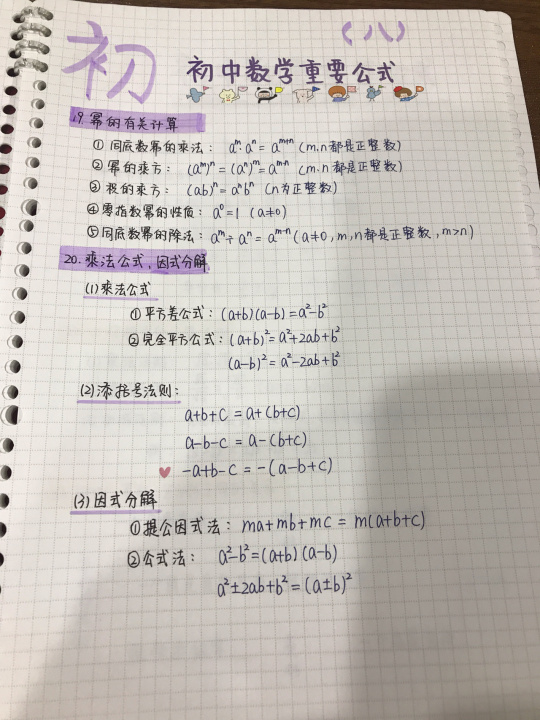 初
（八）
初中数学重要公式
19.幂的有关计算
① 同底数幂的乘法： aᵐ·aⁿ = aᵐ⁺ⁿ (m.n都是正整数)
② 幂的乘方： (aᵐ)ⁿ = (aⁿ)ᵐ = aᵐ·ⁿ (m.n都是正整数)
③ 积的乘方： (ab)ⁿ = aⁿbⁿ (n为正整数)
④ 零指数幂的性质： a⁰=1 (a≠0)
⑤ 同底数幂的除法： aᵐ÷aⁿ = aᵐ⁻ⁿ (a≠0, m,n都是正整数, m>n)
20.乘法公式,因式分解
(1)乘法公式
①平方差公式： (a+b)(a-b)=a²-b²
②完全平方公式： (a+b)²=a²+2ab+b²
(a-b)²=a²-2ab+b²
(2)添括号法则：
a+b+c = a+(b+c)
a-b-c = a-(b+c)
-a+b-c = -(a-b+c)
(3)因式分解
①提公因式法： ma+mb+mc = m(a+b+c)
②公式法： a²-b²=(a+b)(a-b)
a²±2ab+b²=(a±b)²